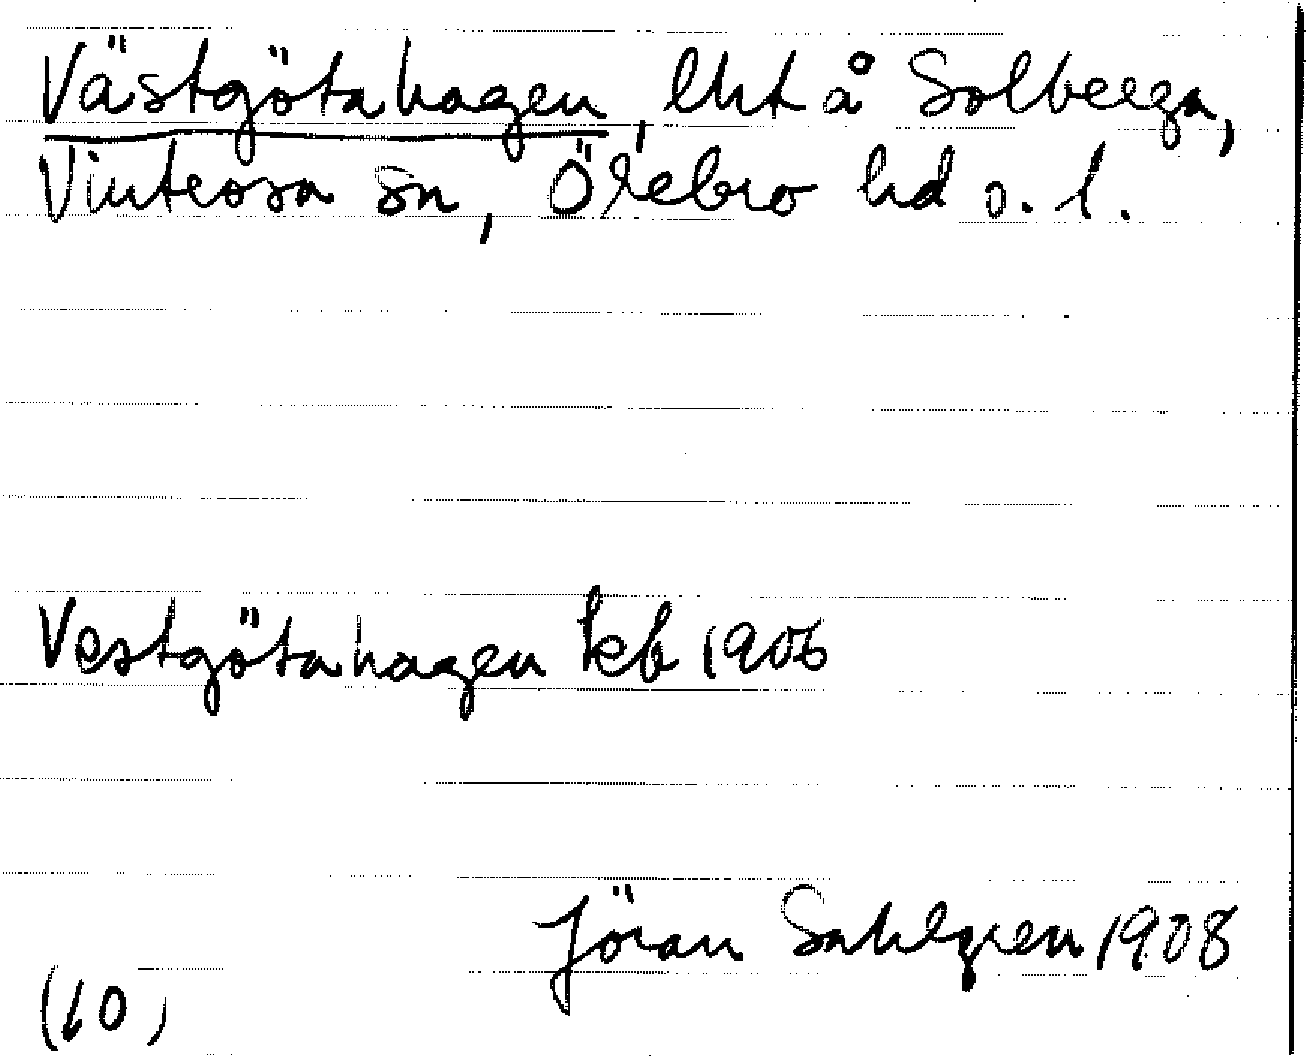 Västgötahagen, lht å Solberga,
Vintrosa sn, Örebro hd ö. l.
Vestgötahagen kb 1906
Jöran Sahlgren 1908
(10)